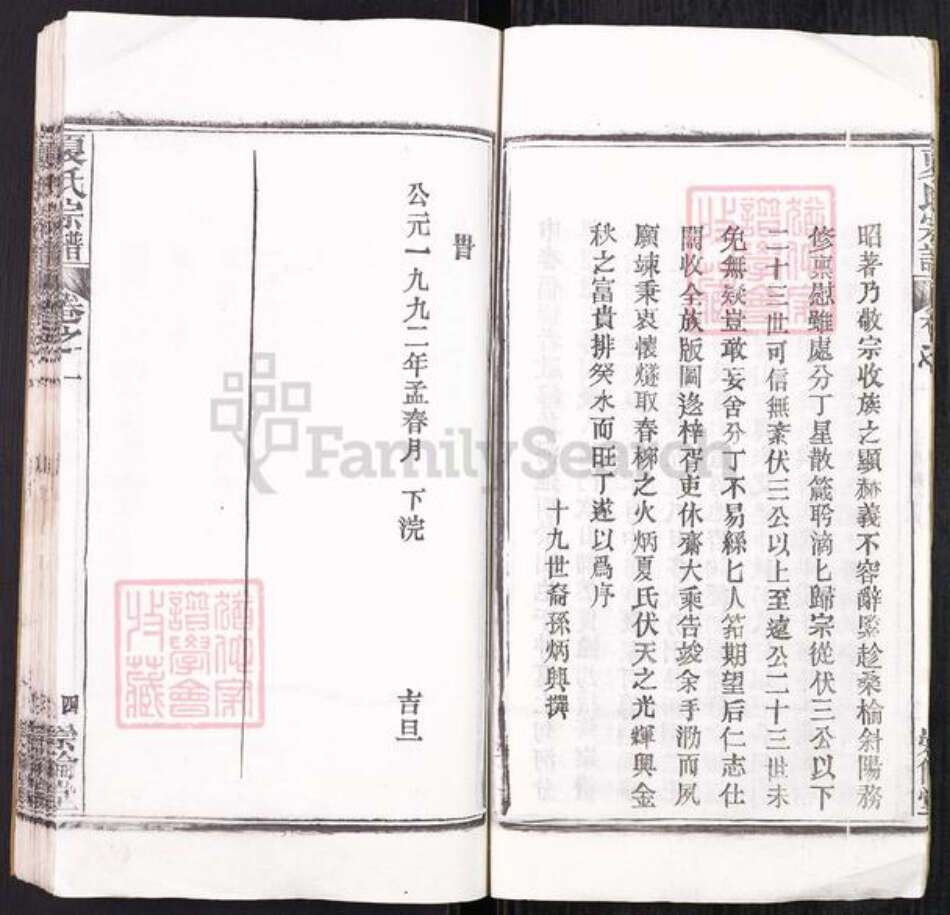 昭著乃敬宗收族之顯赫義不容辭緊趁桑榆斜陽務
修稟慰雖處分丁星散箴聆滴匕歸宗從伏三公以下
二十三世可信無紊伏三公以上至遠公二十三世未
免無燚豈敢妄舍分丁不易絲匕人筘期望后仁志仕
關收全族版圖逸梓胥吏休齋大乘告竣余手泐而夙
願竦秉衷懷燧取春柳之火炳夏氏伏天之光輝興金
秋之富貴排癸水而旺丁遂以爲序
十九世裔孫炳興撰
公元一九九二年孟春月 下浣 吉旦
夏氏宗譜
卷之一
四
FamilySearch